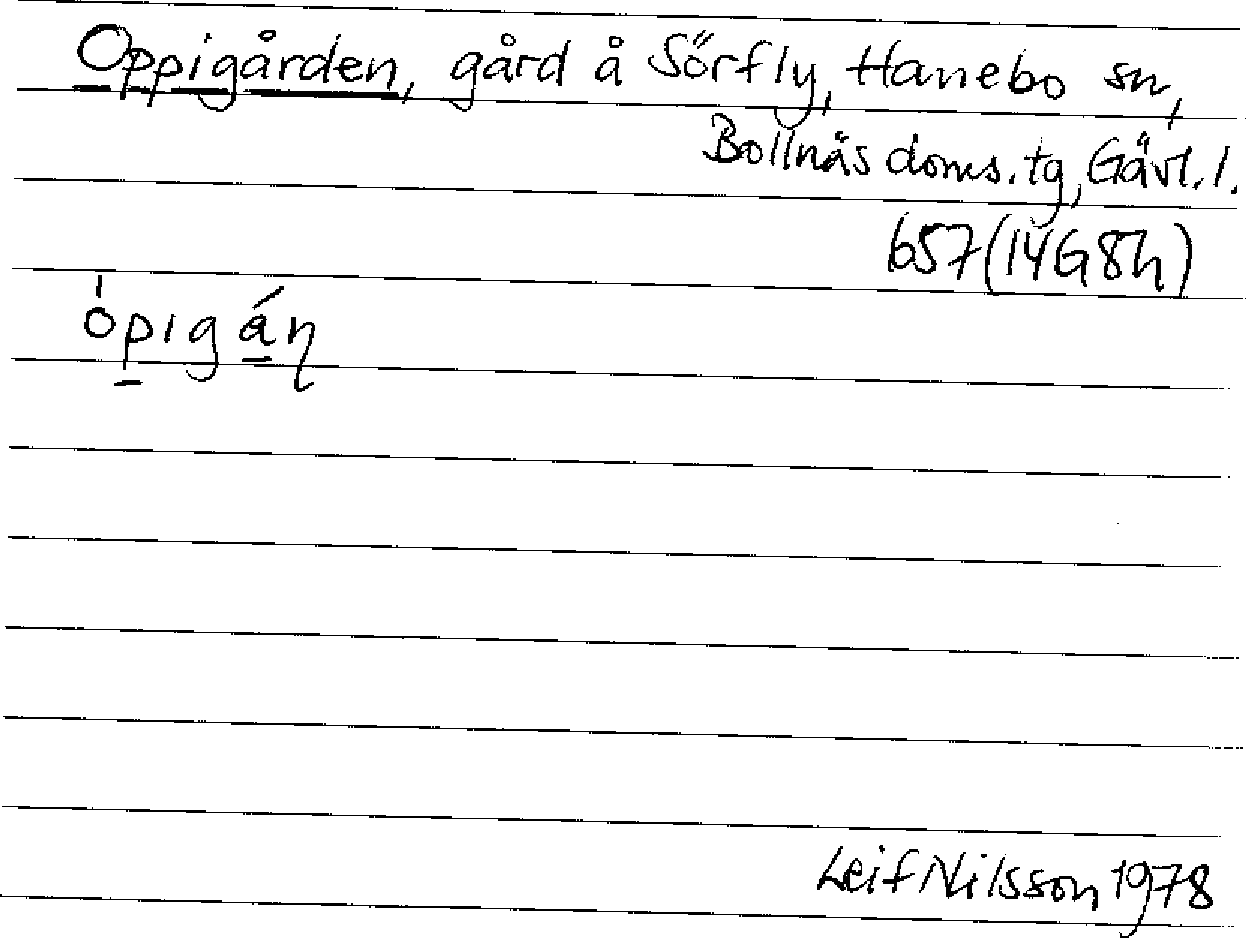 Oppigården, gård å Sörfly, Hanebo sn,
Bollnäs doms.tg, Gävl.l.
657 (14G8h)
òp̲ıgá̲ꞑ
Leif Nilsson 1978